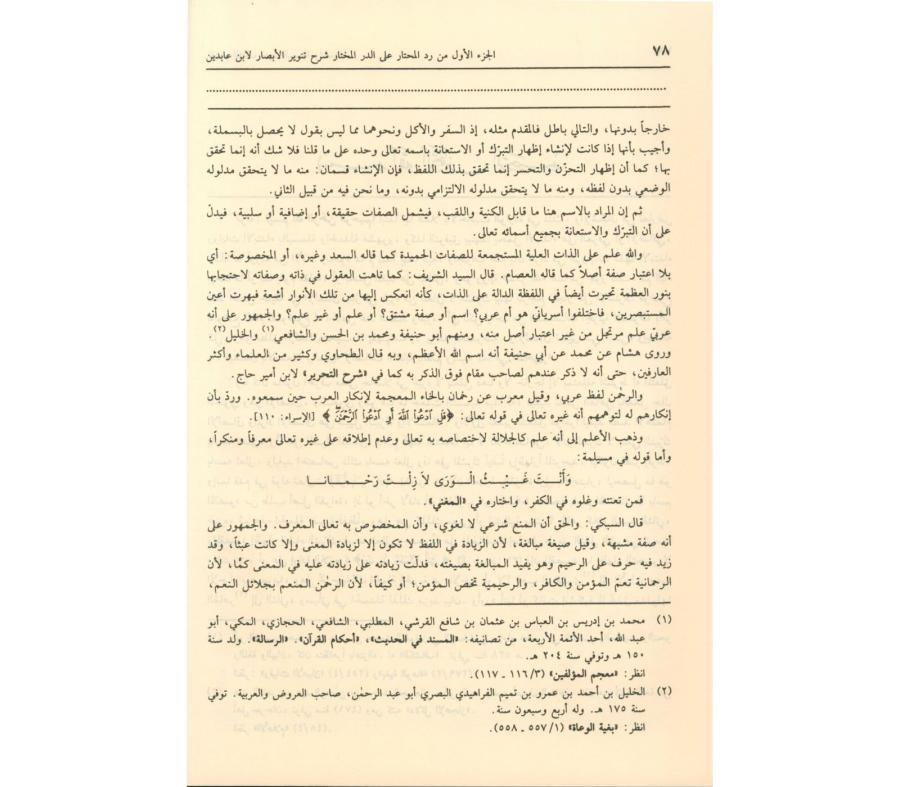 ٧٨
الجزء الأول من رد المحتار على الدر المختار شرح تنوير الأبصار لابن عابدين
خارجاً بدونها، والتالي باطل فالمقدم مثله، إذ السفر والأكل ونحوهما مما ليس بقول لا يحصل بالبسملة،
وأجيب بأنها إذا كانت لإنشاء إظهار التبرّك أو الاستعانة باسمه تعالى وحده على ما قلنا فلا شك أنه إنما تحقق
بها؛ كما أن إظهار التحزّن والتحسر إنما تحقق بذلك اللفظ، فإن الإنشاء قسمان: منه ما لا يتحقق مدلوله
الوضعي بدون لفظه، ومنه ما لا يتحقق مدلوله الالتزامي بدونه، وما نحن فيه من قبيل الثاني.
ثم إن المراد بالاسم هنا ما قابل الكنية واللقب، فيشمل الصفات حقيقة، أو إضافية أو سلبية، فيدلّ
على أن التبرّك والاستعانة بجميع أسمائه تعالى.
والله علم على الذات العلية المستجمعة للصفات الحميدة كما قاله السعد وغيره، أو المخصوصة: أي
بلا اعتبار صفة أصلاً كما قاله العصام. قال السيد الشريف: كما تاهت العقول في ذاته وصفاته لاحتجابها
بنور العظمة تحيرت أيضاً في اللفظة الدالة على الذات، كأنه انعكس إليها من تلك الأنوار أشعة فبهرت أعين
المستبصرين، فاختلفوا أسريانيّ هو أم عربي؟ اسم أو صفة مشتق؟ أو علم أو غير علم؟ والجمهور على أنه
عربيّ علم مرتجل من غير اعتبار أصل منه، ومنهم أبو حنيفة ومحمد بن الحسن والشافعي(١) والخليل(٢).
وروى هشام عن محمد عن أبي حنيفة أنه اسم الله الأعظم، وبه قال الطحاوي وكثير من العلماء وأكثر
العارفين، حتى أنه لا ذكر عندهم لصاحب مقام فوق الذكر به كما في «شرح التحرير» لابن أمير حاج.
والرحمٰن لفظ عربي، وقيل معرب عن رخمان بالخاء المعجمة لإنكار العرب حين سمعوه. وردّ بأن
إنكارهم له لتوهمهم أنه غيره تعالى في قوله تعالى: ﴿قُلِ ٱدْعُوا۟ ٱللَّهَ أَوِ ٱدْعُوا۟ ٱلرَّحْمَٰنَۖ﴾ [الإسراء: ١١٠].
وذهب الأعلم إلى أنه علم كالجلالة لاختصاصه به تعالى وعدم إطلاقه على غيره تعالى معرفاً ومنكراً،
وأما قوله في مسيلمة:
وَأَنْتَ غَيْثُ الْوَرَى لاَ زِلْتَ رَحْمَانَا
فمن تعنته وغلوه في الكفر، واختاره في «المغني».
قال السبكي: والحق أن المنع شرعي لا لغوي، وأن المخصوص به تعالى المعرف. والجمهور على
أنه صفة مشبهة، وقيل صيغة مبالغة، لأن الزيادة في اللفظ لا تكون إلا لزيادة المعنى وإلا كانت عبثاً، وقد
زيد فيه حرف على الرحيم وهو يفيد المبالغة بصيغته، فدلّت زيادته على زيادته عليه في المعنى كمًّا، لأن
الرحمانية تعمّ المؤمن والكافر، والرحيمية تخص المؤمن؛ أو كيفاً، لأن الرحمٰن المنعم بجلائل النعم،
(١) محمد بن إدريس بن العباس بن عثمان بن شافع القرشي، المطلبي، الشافعي، الحجازي، المكي، أبو
عبد الله، أحد الأئمة الأربعة، من تصانيفه: «المسند في الحديث»، «أحكام القرآن»، «الرسالة». ولد سنة
١٥٠ هـ وتوفي سنة ٢٠٤ هـ.
انظر: «معجم المؤلفين» (١١٦/٣ ـ ١١٧).
(٢) الخليل بن أحمد بن عمرو بن تميم الفراهيدي البصري أبو عبد الرحمٰن، صاحب العروض والعربية. توفي
سنة ١٧٥ هـ. وله أربع وسبعون سنة.
انظر: «بغية الوعاة» (٥٥٧/١ ـ ٥٥٨).